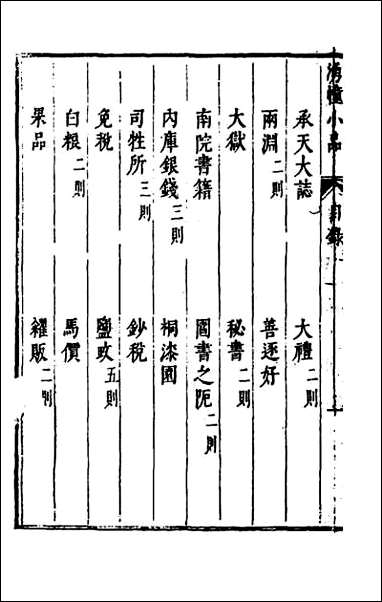 湧幢小品 目錄
承天大誌 大禮二則
兩淵二則 善逐好
大獄 秘書二則
南院書籍 閣書之阨二則
內庫銀錢三則 桐漆園
司牲所三則 鈔稅
免稅 鹽政五則
白粮二則 馬價
果品 糴販二則